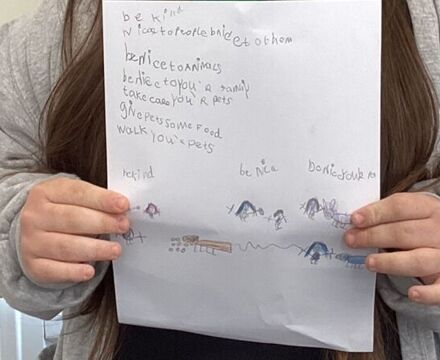 be kind
nicetopeoplebnicetothom
beniceToAnimALs
beniectoyou'a family
takecareyou'R pets
givepetssomefood
walkyou'repets
rekind be nice